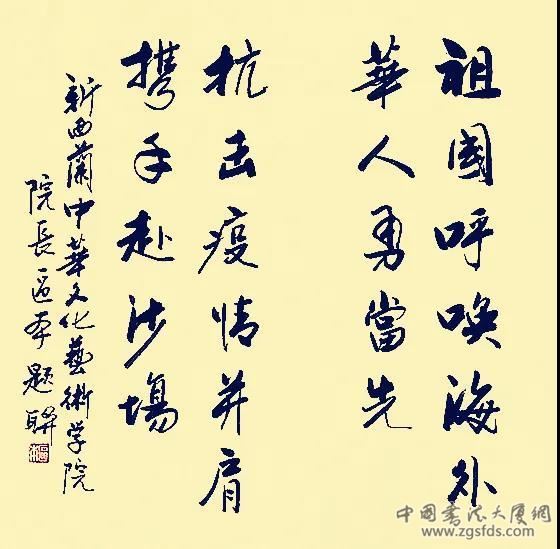 祖國呼喚海外
華人勇當先
抗击疫情并肩
携手赴沙場
新西蘭中華文化藝術学院
院長區本題聯
中国書法大厦網
www.zgsfds.com